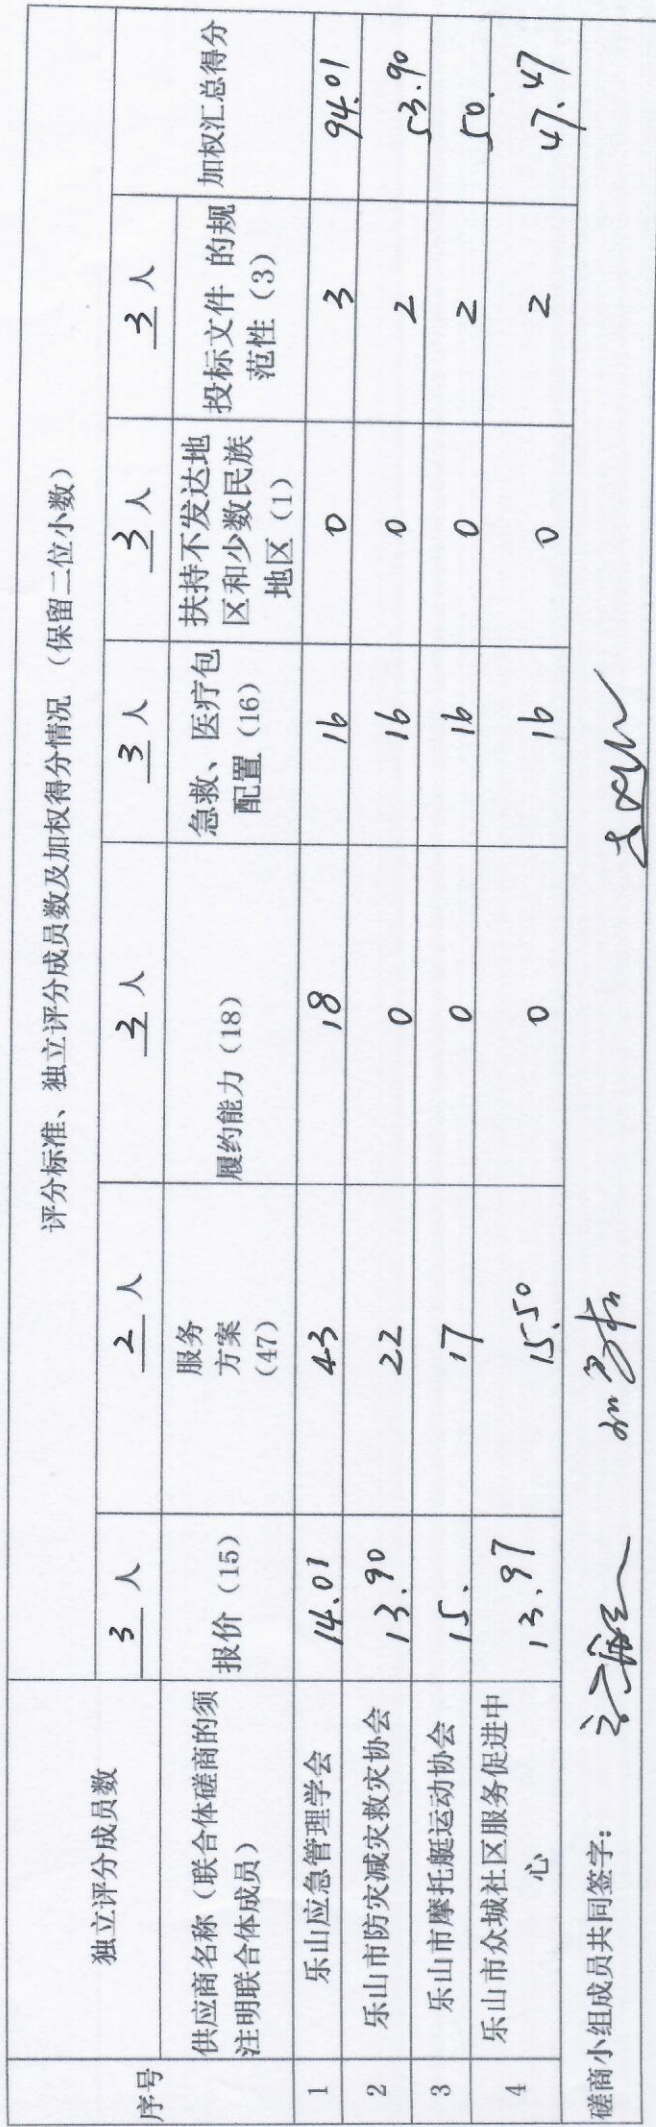 序号 独立评分成员数 评分标准、独立评分成员数及加权得分情况（保留二位小数）
3 人 2 人 3 人 3 人 3 人 3 人 加权汇总得分
供应商名称（联合体磋商的须
注明联合体成员）
报价（15）
服务
方案
（47）
履约能力（18）
急救、医疗包
配置（16）
扶持不发达地
区和少数民族
地区（1）
投标文件 的规
范性（3）
1 乐山应急管理学会 14.01 43 18 16 0 3 94.01
2 乐山市防灾减灾救灾协会 13.90 22 0 16 0 2 53.90
3 乐山市摩托艇运动协会 15. 17 0 16 0 2 50.
4 乐山市众城社区服务促进中
心 13.97 15.50 0 16 0 2 47.47
磋商小组成员共同签字：